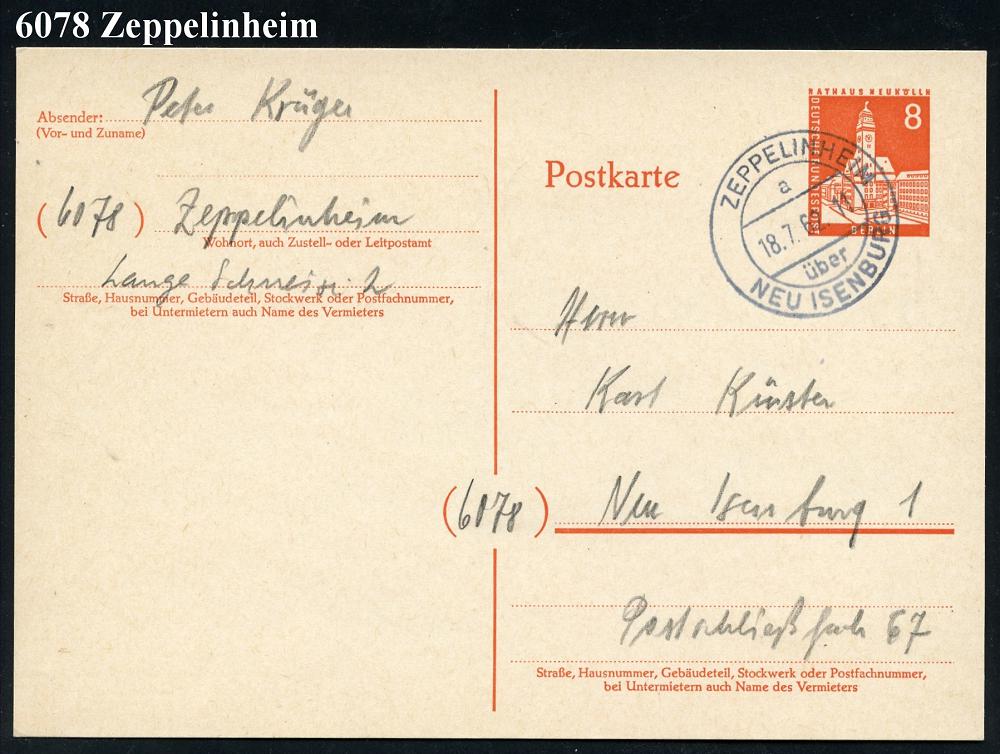 6078 Zeppelinheim
Absender: Peter Krüger
(Vor- und Zuname)
(6078) Zeppelinheim
Wohnort, auch Zustell- oder Leitpostamt
Lange Schneise 2
Straße, Hausnummer, Gebäudeteil, Stockwerk oder Postfachnummer,
bei Untermietern auch Name des Vermieters
Postkarte
RATHAUS NEUKÖLLN
8
DEUTSCHE BUNDESPOST
BERLIN
ZEPPELINHEIM
a
18.7.
über
NEU ISENBURG
Herrn
Karl Künster
(6078) Neu Isenburg 1
Postschließfach 67
Straße, Hausnummer, Gebäudeteil, Stockwerk oder Postfachnummer,
bei Untermietern auch Name des Vermieters